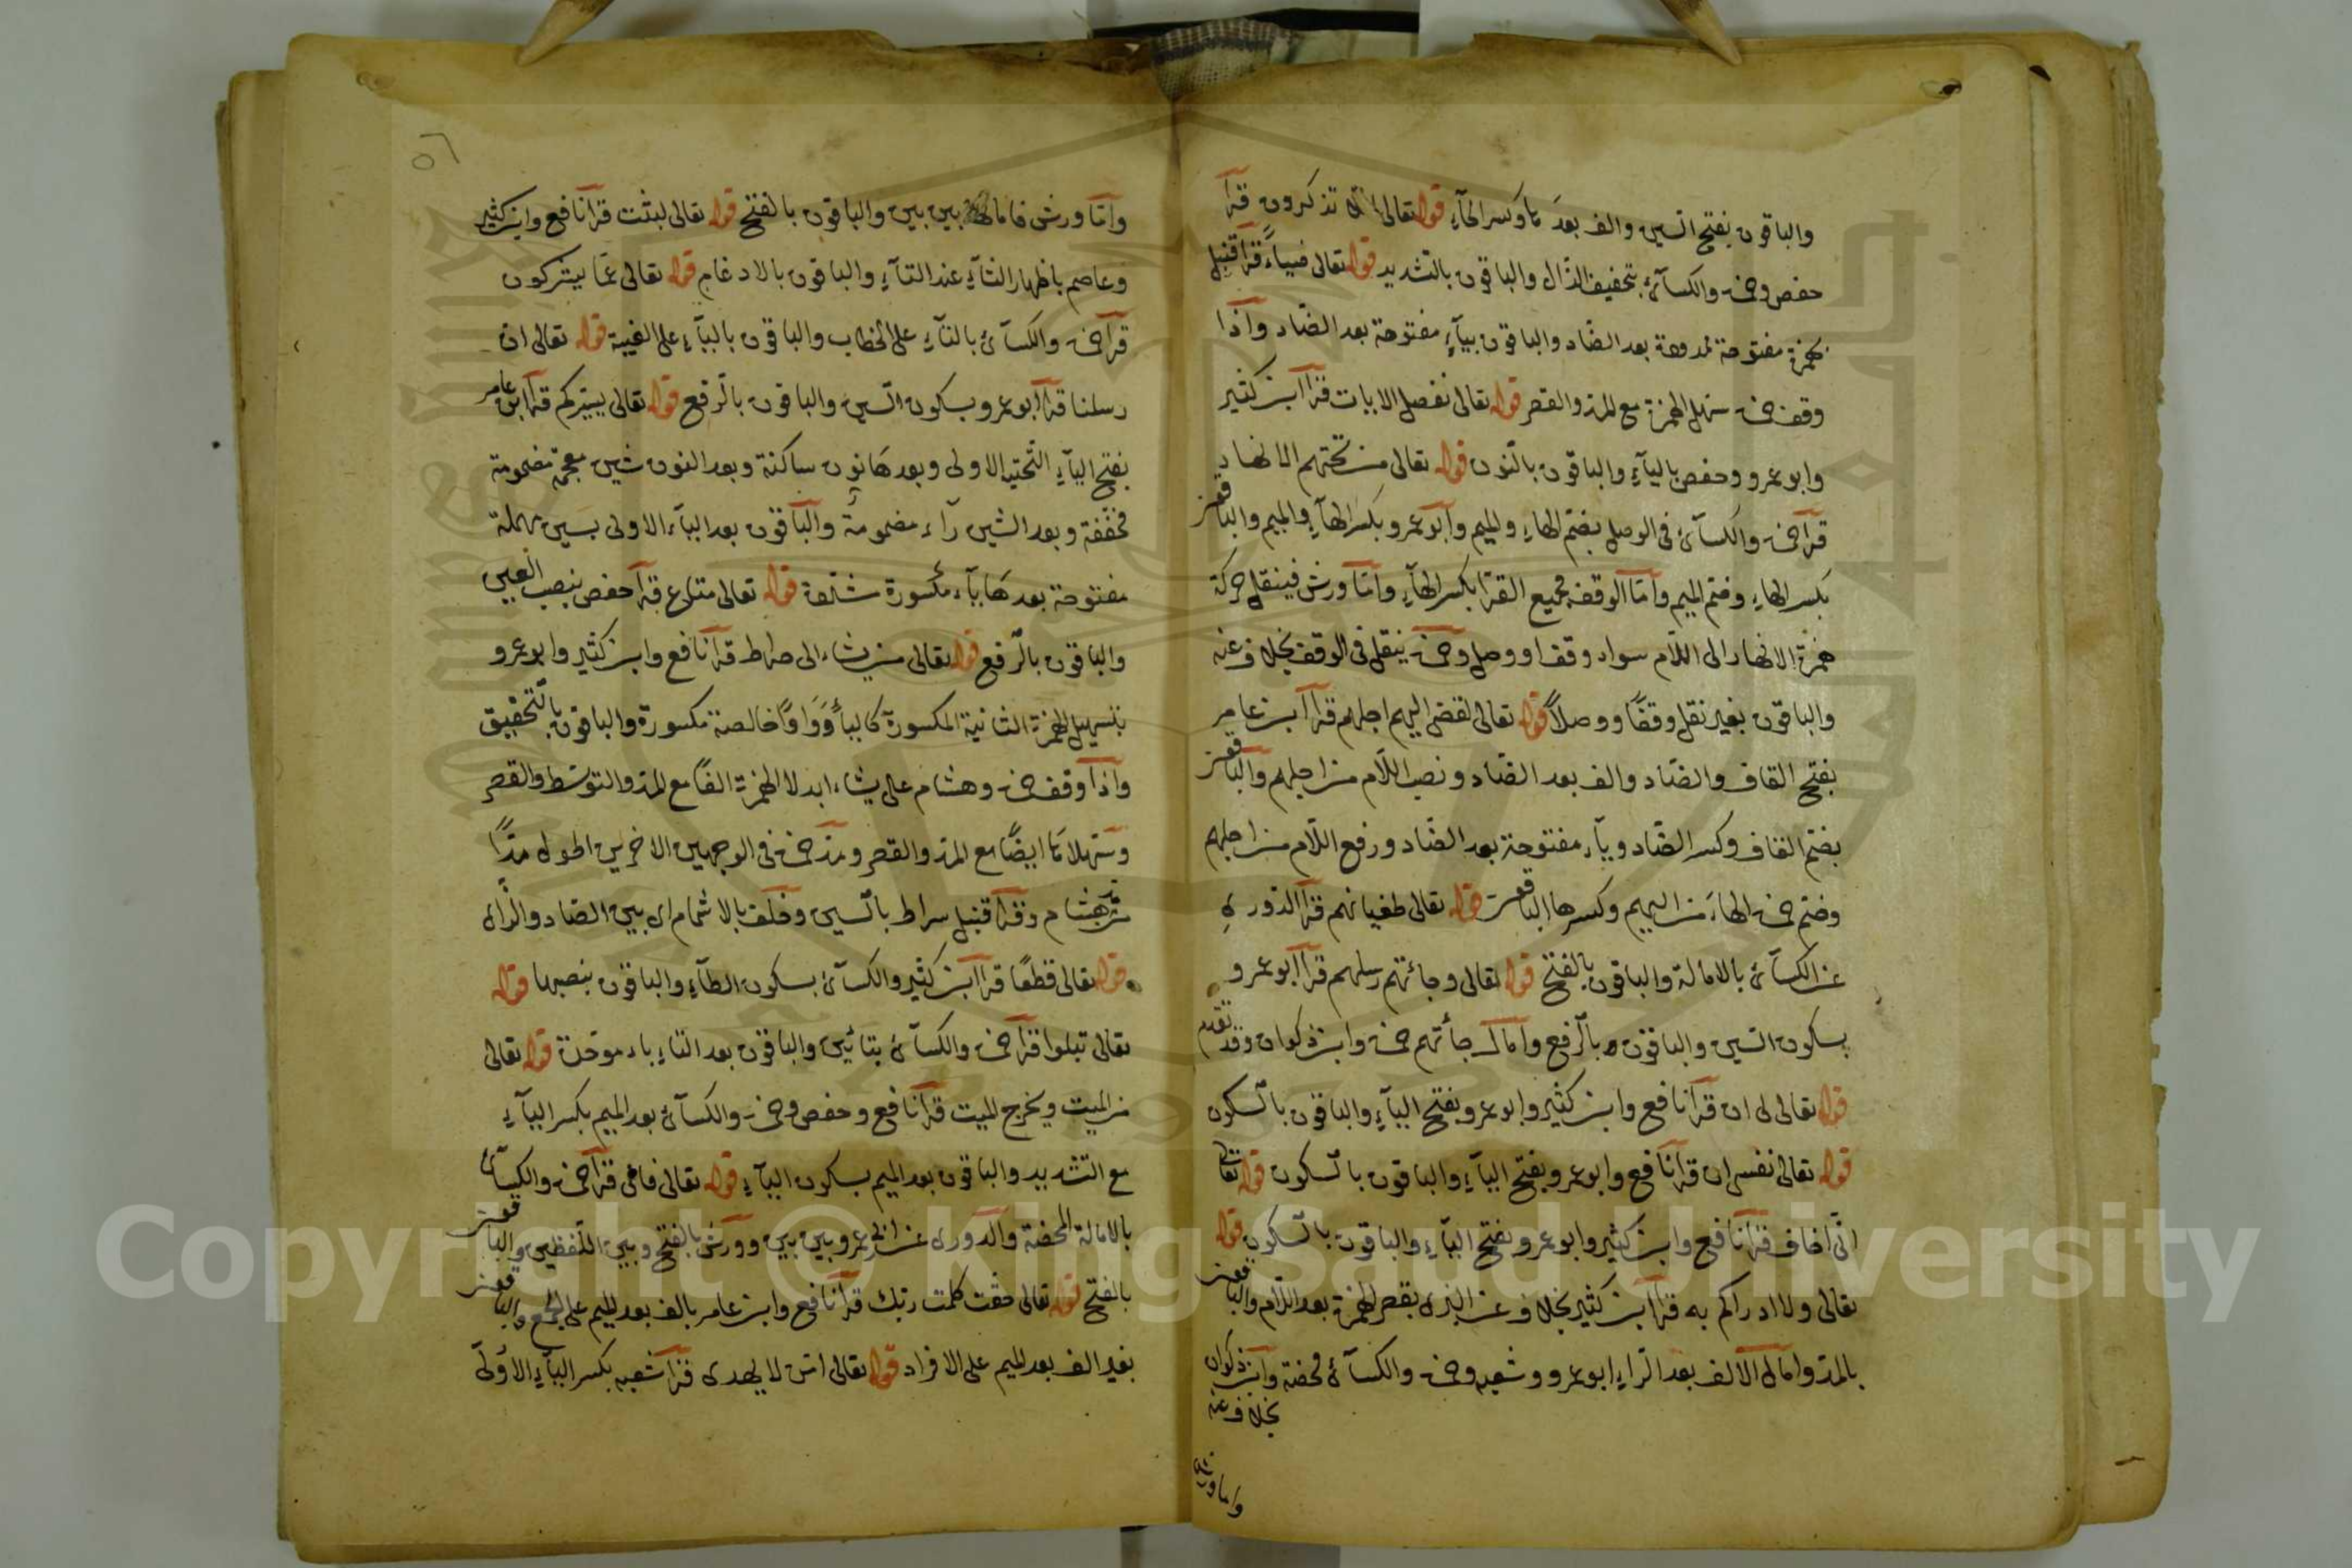 والباقون بفتح السين والف بعدها وكسر الحآء قوله تعالى تذكرون قرأ
حفص وحمزة والكسآئ بتخفيف الذال والباقون بالتشديد قوله تعالى ضياءً قرأ قنبل
بهمزة مفتوحة ممدودة بعد الضاد والباقون بيآءٍ مفتوحة بعد الضاد واذا
وقف حمزة سهل الهمزة مع المد والقصر قوله تعالى نفصل الايات قرأ ابن كثير
وابو عمرو وحفص باليآءِ والباقون بالنون قوله تعالى من تحتهم الانهار
قرأ حمزة والكسآئ فى الوصل بضم الهاءِ والميم وأبو عمرو بكسر الهآءِ والميم والباقون
بكسر الهاءِ وضم الميم وأما الوقف فجميع القرّا بكسر الهآءِ وأما ورش فينقل حركة
همزة الانهار الى اللّام سواء وقف او وصل وحمزة ينقل فى الوقف بخلاف عنه
والباقون بغير نقل وقفًا ووصلاً قوله تعالى لقضى اليهم اجلهم قرأ ابن عامر
بفتح القاف والضاد والف بعد الضّاد ونصب اللّام من اجلهم والباقون
بضم القاف وكسر الضّاد ويآء مفتوحة بعد الضّاد ورفع اللّام من اجلهم
وضم حمزة الهاءَ من اليهم وكسرها الباقون قوله تعالى طغيانهم قرأ الدورى
عن الكسآئ بالامالة والباقون بالفتح قوله تعالى وجائتهم رسلهم قرأ أبو عمرو
بسكون السين والباقون بالرفع وأمال جائتهم حمزة وابن ذكوان وقد تقدم
قوله تعالى لى ان قرأ نافع وابن كثير وابو عمرو بفتح اليآءِ والباقون بالسكون
قوله تعالى نفسى ان قرأ نافع وابو عمرو بفتح اليآءِ والباقون بالسكون قوله تعالى
انّى اخاف قرأ نافع وابن كثير وابو عمرو بفتح اليآءِ والباقون بالسكون قوله
تعالى ولا ادراكم به قرأ ابن كثير بخلاف عن البزى بقصر الهمزة بعد اللّام والباقون
بالمد وامال الالف بعد الرّاءِ ابو عمرو وشعبه وحمزة والكسآئ محضة وابن ذكوان
بخلاف عنه
واما ورش
٥٦
وأمّا ورش فامالها بين بين والباقون بالفتح قوله تعالى لبثت قرأ نافع وابن كثير
وعاصم باظهار الثآءِ عند التآءِ والباقون بالادغام قوله تعالى عمّا يشركون
قرأ حمزة والكسآئ بالتآءِ على الخطاب والباقون باليآءِ على الغيبة قوله تعالى ان
رسلنا قرأ أبو عمرو بسكون السين والباقون بالرفع قوله تعالى يسيركم قرأ ابن عامر
بفتح اليآءِ التحتية الاولى وبعدها نون ساكنة وبعد النون شين معجمة مضمومة
مخففة وبعد الشين رآء مضمومة والباقون بعد اليآء الاولى بسين مهملة
مفتوحة بعدها يآء مكسورة مشددة قوله تعالى متاع قرأ حفص بنصب العين
والباقون بالرفع قوله تعالى من يشاء الى صراط قرأ نافع وابن كثير وابو عمرو
بتسهيل الهمزة الثانية المكسورة كاليأ وَوَاوًا خالصة مكسورة والباقون بالتحقيق
واذا وقف حمزة وهشام على يشاء ابدلا الهمزة الفًا مع المد والتوسّط والقصر
وسهلاها ايضًا مع المد والقصر ومدّ حمزة فى الوجهين الاخرين اطول مدًّا
من هشام وقرأ قنبل سراط بالسين وخلف بالاشمام اى بين الصاد والزّاى
قوله تعالى قطعًا قرأ ابن كثير والكسآئ بسكون الطآءِ والباقون بنصبها قوله
تعالى تبلوا قرأ حمزة والكسآئ بتائين والباقون بعد التاءِ باء موحدة قوله تعالى
من الميت ويخرج الميت قرأ نافع وحفص وحمزة والكسآئ بعد الميم بكسر اليآءِ
مع التشديد والباقون بعد الميم بسكون اليآءِ قوله تعالى فانى قرأ حمزة والكسآئ
بالامالة المحضة والدورى عن أبى عمرو بين بين وورش بالفتح وبين اللفظين والباقون
بالفتح قوله تعالى حقّت كلمت ربّك قرأ نافع وابن عامر بالف بعد الميم على الجمع والباقون
بغير الف بعد الميم على الافراد قوله تعالى امّن لا يهدى قرأ شعبه بكسر اليآءِ الأولى
Copyright © King Saud University